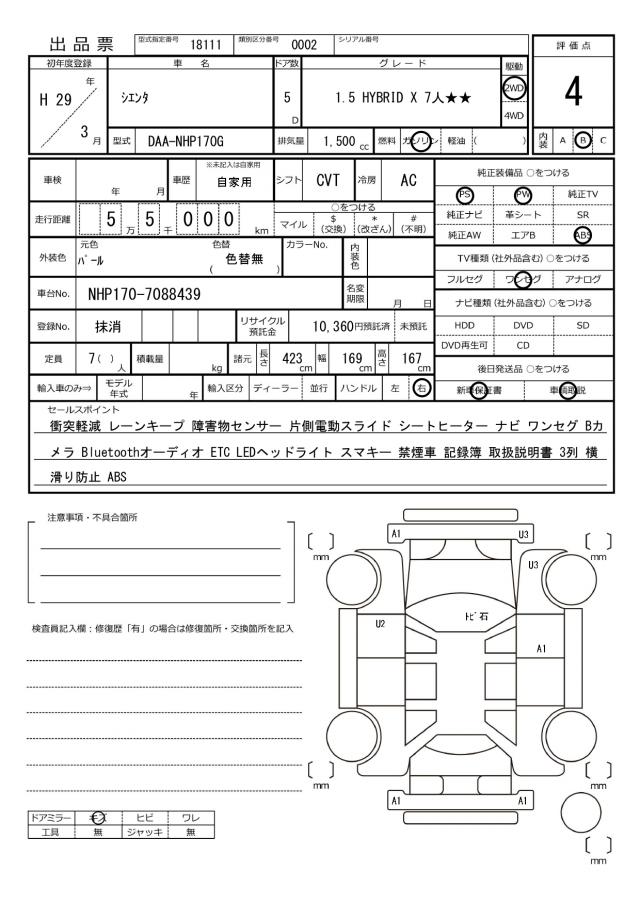 出品票 型式指定番号 18111 類別区分番号 0002 シリアル番号
評価点
4
内装 A B C
初年度登録 車名 ドア数 グレード 駆動
H 29 年 3 月
シエンタ 5 D 1.5 HYBRID X 7人★★ 2WD
4WD
型式 DAA-NHP170G 排気量 1,500 cc 燃料 ガソリン 軽油 ( )
車検 年 月 車歴 ※未記入は自家用 自家用 シフト CVT 冷房 AC
走行距離 5 万 5 千 0 0 0 km
○をつける
マイル $(交換) *(改ざん) #(不明)
外装色 元色 パール 色替 ( 色替無 ) カラーNo. 内装色
車台No. NHP170-7088439 名変期限 月 日
登録No. 抹消 リサイクル預託金 10,360円預託済 未預託
定員 7( )人 積載量 kg 諸元 長さ 423 cm 幅 169 cm 高さ 167 cm
輸入車のみ⇒ モデル年式 年 輸入区分 ディーラー 並行 ハンドル 左 右
純正装備品 ○をつける
PS PW 純正TV
純正ナビ 革シート SR
純正AW エアB ABS
TV種類(社外品含む)○をつける
フルセグ ワンセグ アナログ
ナビ種類(社外品含む)○をつける
HDD DVD SD
DVD再生可 CD
後日発送品 ○をつける
新車保証書 車輌取説
セールスポイント
衝突軽減 レーンキープ 障害物センサー 片側電動スライド シートヒーター ナビ ワンセグ Bカ
メラ Bluetoothオーディオ ETC LEDヘッドライト スマキー 禁煙車 記録簿 取扱説明書 3列 横
滑り防止 ABS
注意事項・不具合箇所
検査員記入欄：修復歴「有」の場合は修復箇所・交換箇所を記入
A1 U3
mm mm
U3
トビ石
U2
A1
mm mm
A1 A1
mm
ドアミラー キズ ヒビ ワレ
工具 無 ジャッキ 無